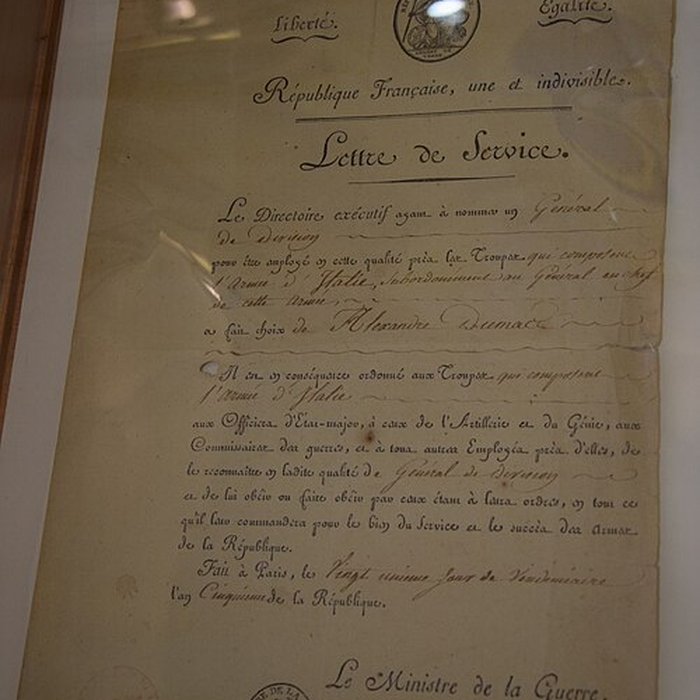 Liberté. Egalité.
République Française, une et indivisible.
Lettre de Service.
Le Directoire exécutif ayant à nommer un Général
de division
pour être employé en cette qualité près les Troupes qui composent
l'Armée d'Italie, subordonnément au Général en chef
de cette armée,
a fait choix de Alexandre Dumas
Il est en conséquence ordonné aux Troupes qui composent
l'armée d'Italie
aux Officiers d'Etat-major, à ceux de l'Artillerie et du Génie, aux
Commissaires des guerres, et à tous autres Employés près d'elles, de
le reconnaître en ladite qualité de Général de division
et de lui obéir ou faire obéir par ceux étant à leurs ordres, en tout ce
qu'il leur commandera pour le bien du Service et le succès des Armes
de la République.
Fait à Paris, le Vingt unieme Jour de Vendémiaire
l'an Cinquieme de la République.
Le Ministre de la Guerre,